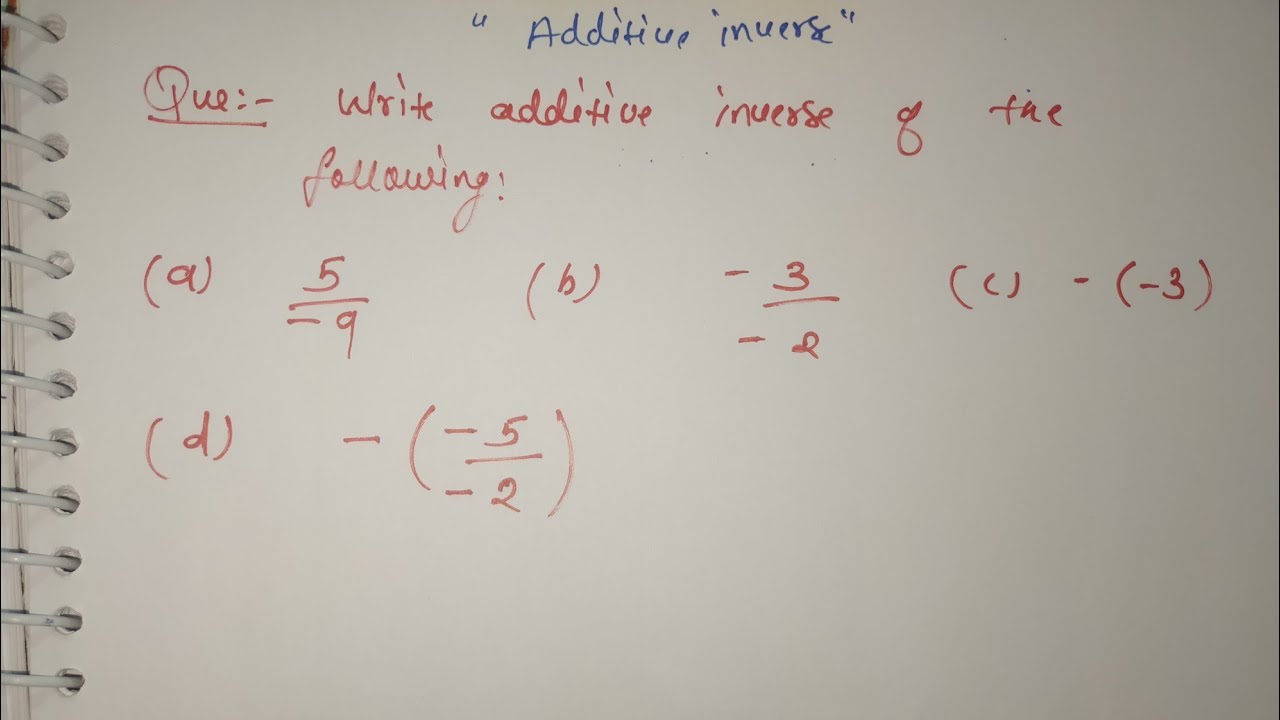 " Additive inverse"
Que:- Write additive inverse of the
following:
(a) 5/-9 (b) -3/-2 (c) -(-3)
(d) -(-5/-2)